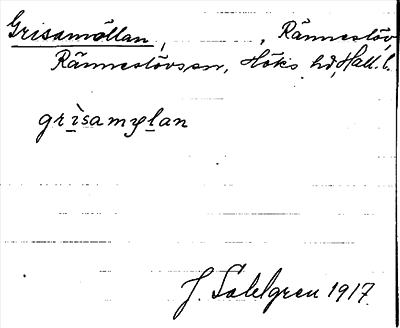 Grisamöllan, , Ränneslöv,
Ränneslövs sn, Höks hd, Hall. l.
grìsamylan
J. Sahlgren 1917.